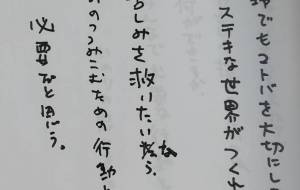 でもコトバを大切にし
ステキな世界がつくれ
しみを救いたいなら。
のつつみこむための行動
必要だと思う。